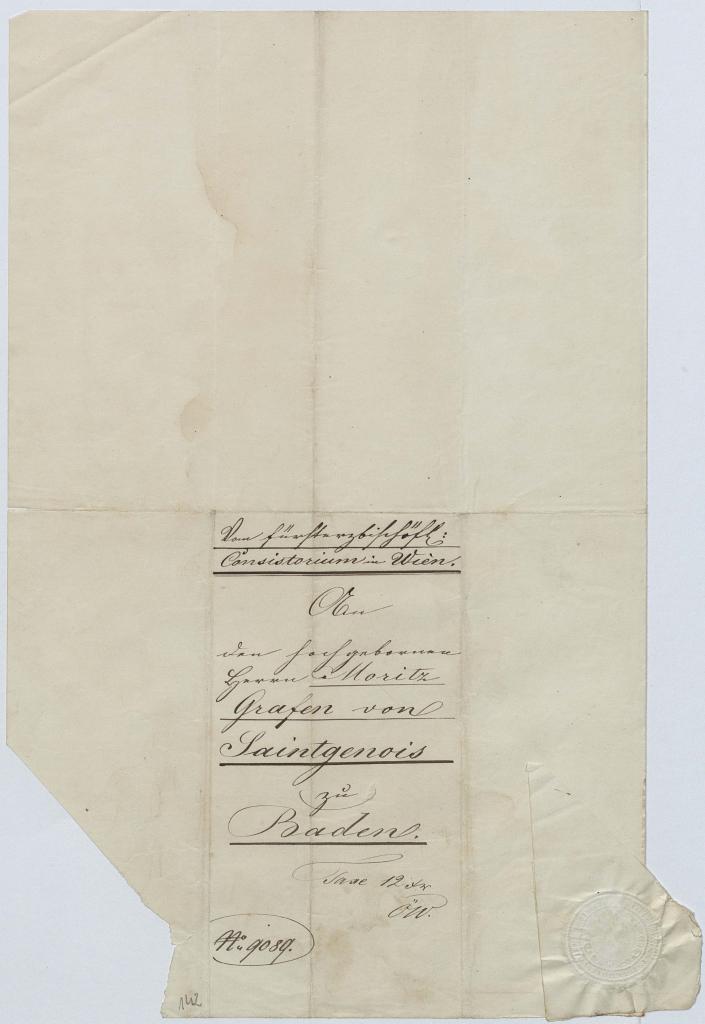 Vom fürsterzbischöfl:
Consistorium in Wien.
An
den hochgebornen
Herrn Moritz
Grafen von
Saintgenois
zu
Baden.
Taxe 12 xr
ÖW.
No 9089.
142